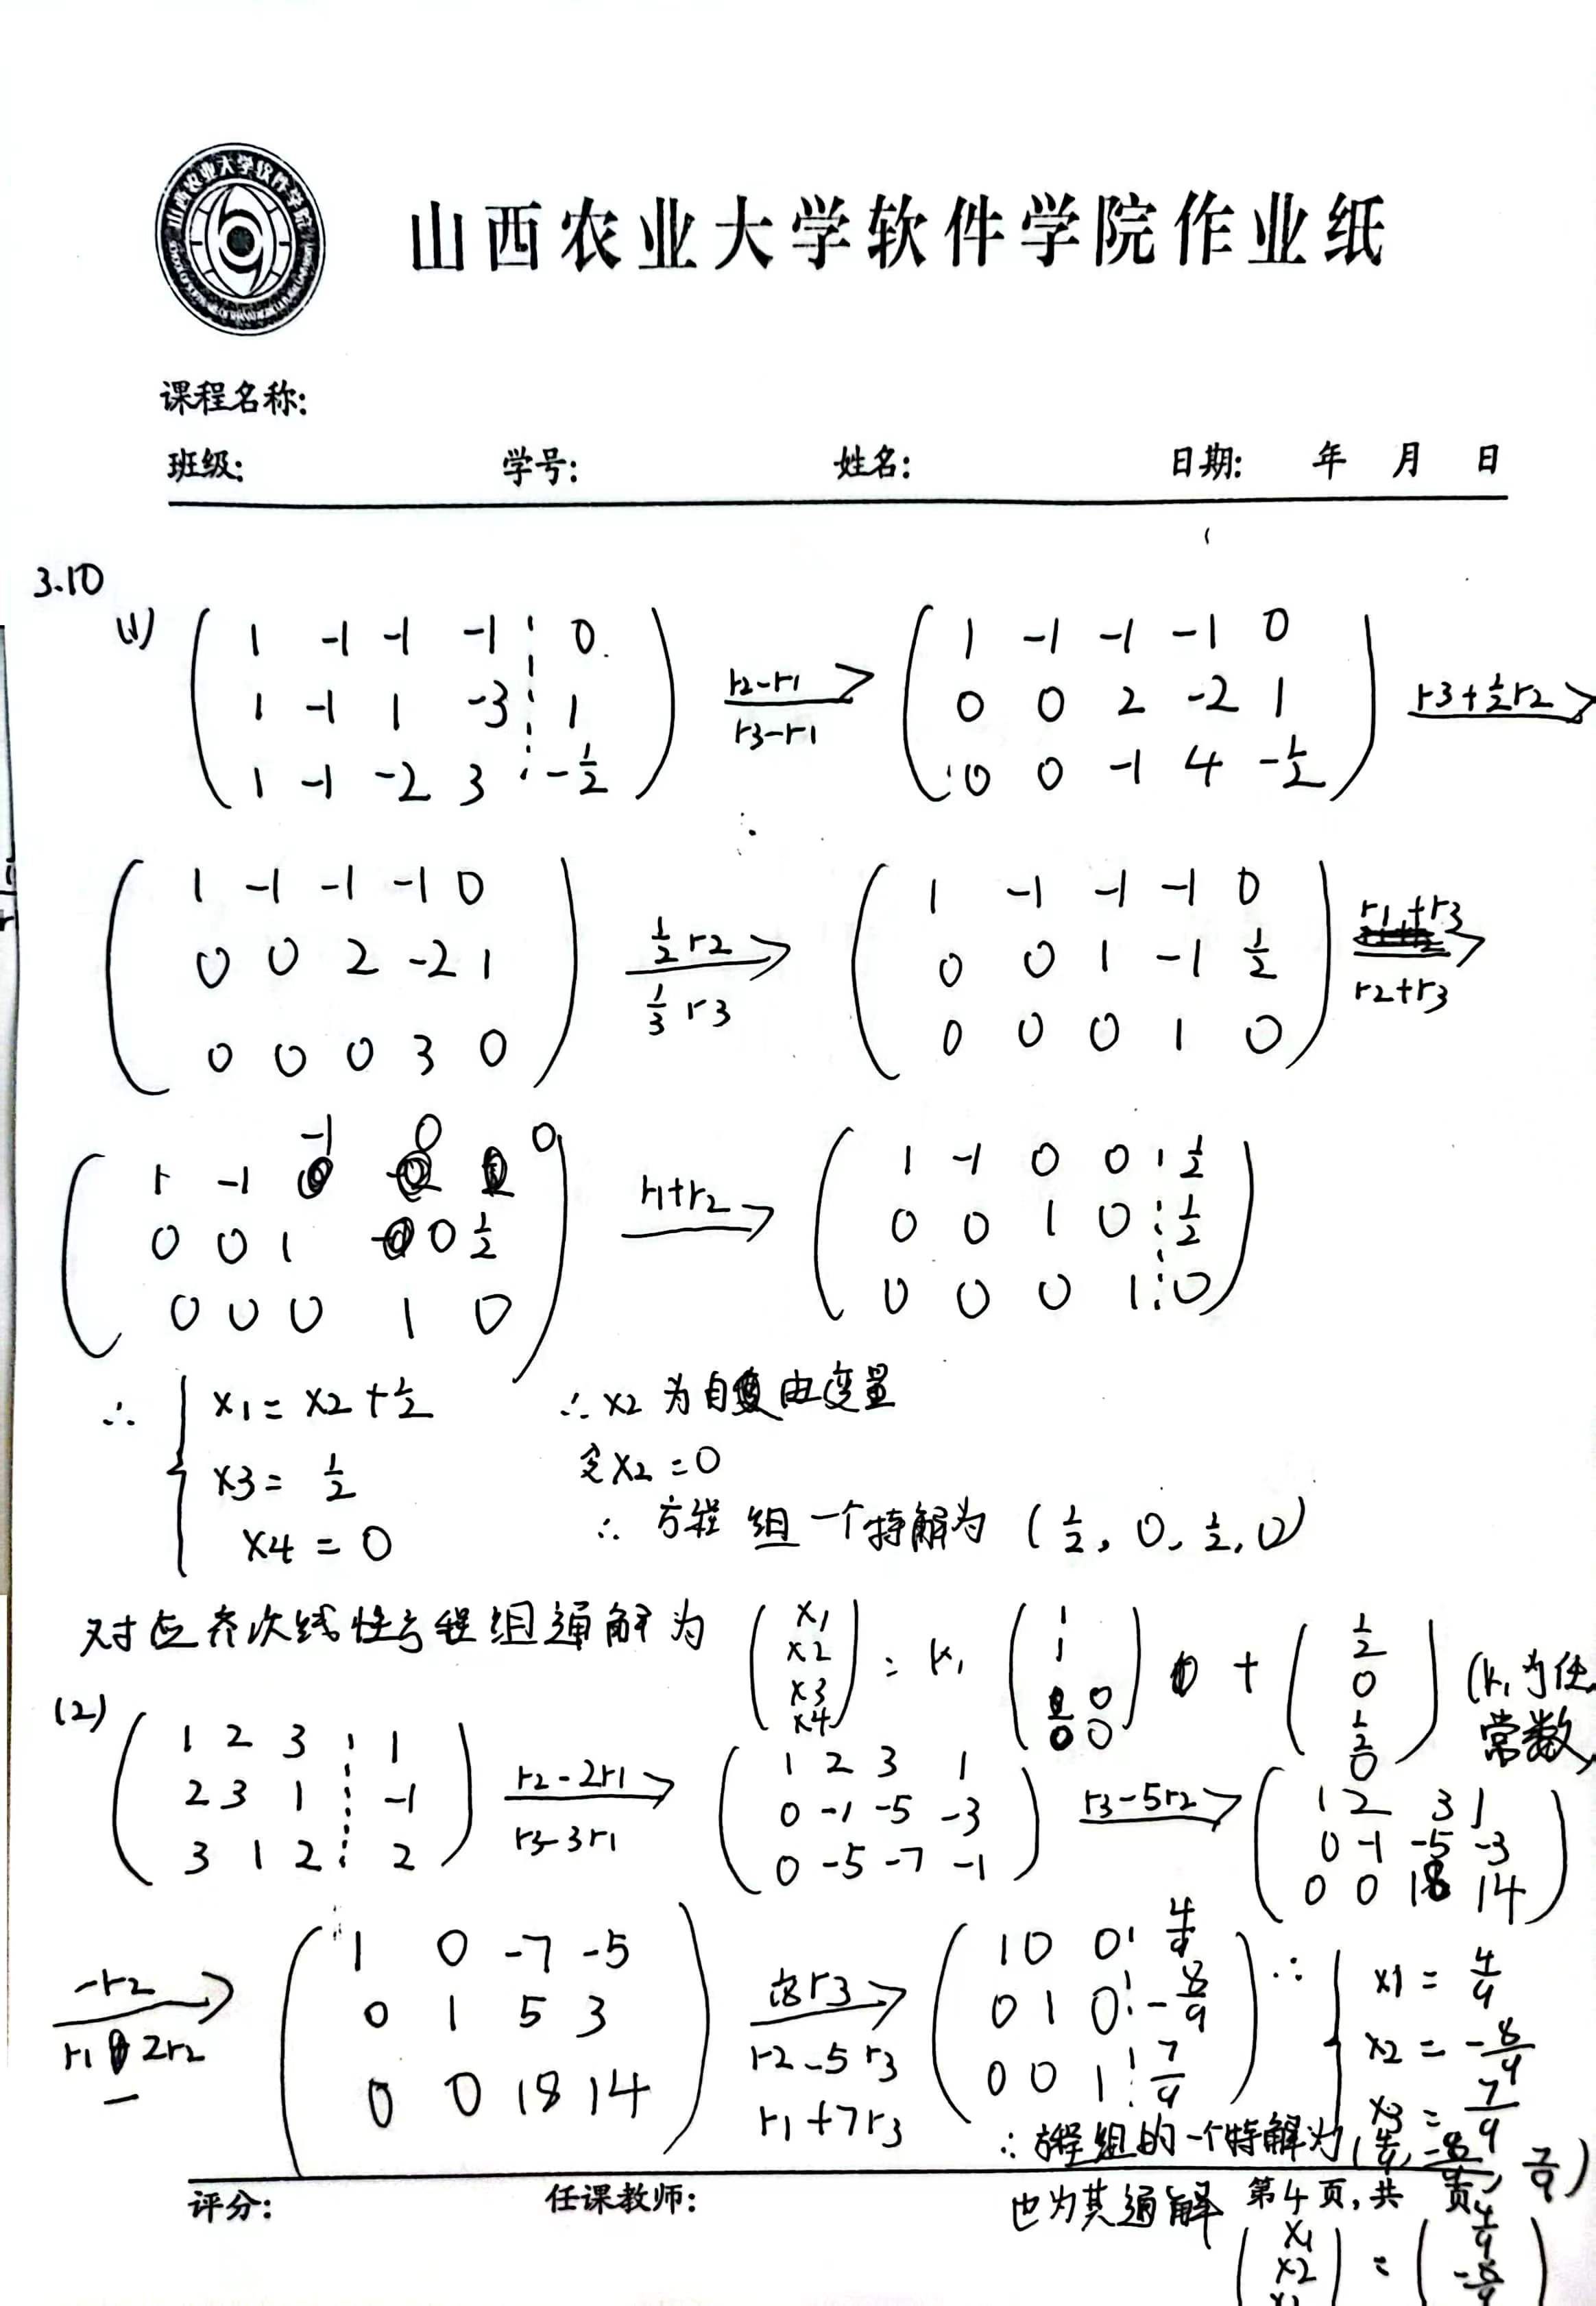 山西农业大学软件学院
山西农业大学软件学院作业纸
课程名称:
班级: 学号: 姓名: 日期: 年 月 日
3.10
(1)
1 -1 -1 -1 0
1 -1 1 -3 1
1 -1 -2 3 -1/2
r2-r1
r3-r1
1 -1 -1 -1 0
0 0 2 -2 1
0 0 -1 4 -1/2
r3+1/2r2
1 -1 -1 -1 0
0 0 2 -2 1
0 0 0 3 0
1/2 r2
1/3 r3
1 -1 -1 -1 0
0 0 1 -1 1/2
0 0 0 1 0
r1+r3
r2+r3
1 -1 -1 0 0
0 0 1 0 1/2
0 0 0 1 0
r1+r2
1 -1 0 0 1/2
0 0 1 0 1/2
0 0 0 1 0
∴ x1= x2+1/2
x3= 1/2
x4=0
∴x2 为自由变量
令x2=0
∴ 方程组一个特解为 (1/2, 0, 1/2, 0)
对应齐次线性方程组通解为
x1
x2
x3
x4
= k1
1
1
0
0
+
1/2
0
1/2
0
(k1为任
常数
(2)
1 2 3 1
2 3 1 -1
3 1 2 2
r2-2r1
r3-3r1
1 2 3 1
0 -1 -5 -3
0 -5 -7 -1
r3-5r2
1 2 3 1
0 -1 -5 -3
0 0 18 14
-r2
r1-2r2
1 0 -7 -5
0 1 5 3
0 0 18 14
1/18r3
r2-5r3
r1+7r3
1 0 0 4/9
0 1 0 -8/9
0 0 1 7/9
∴ x1= 4/9
x2= -8/9
x3= 7/9
∴方程组的一个特解为(4/9, -8/9, 7/9)
也为其通解
评分: 任课教师: 第4页,共 页
x1
x2
=
4/9
-8/9